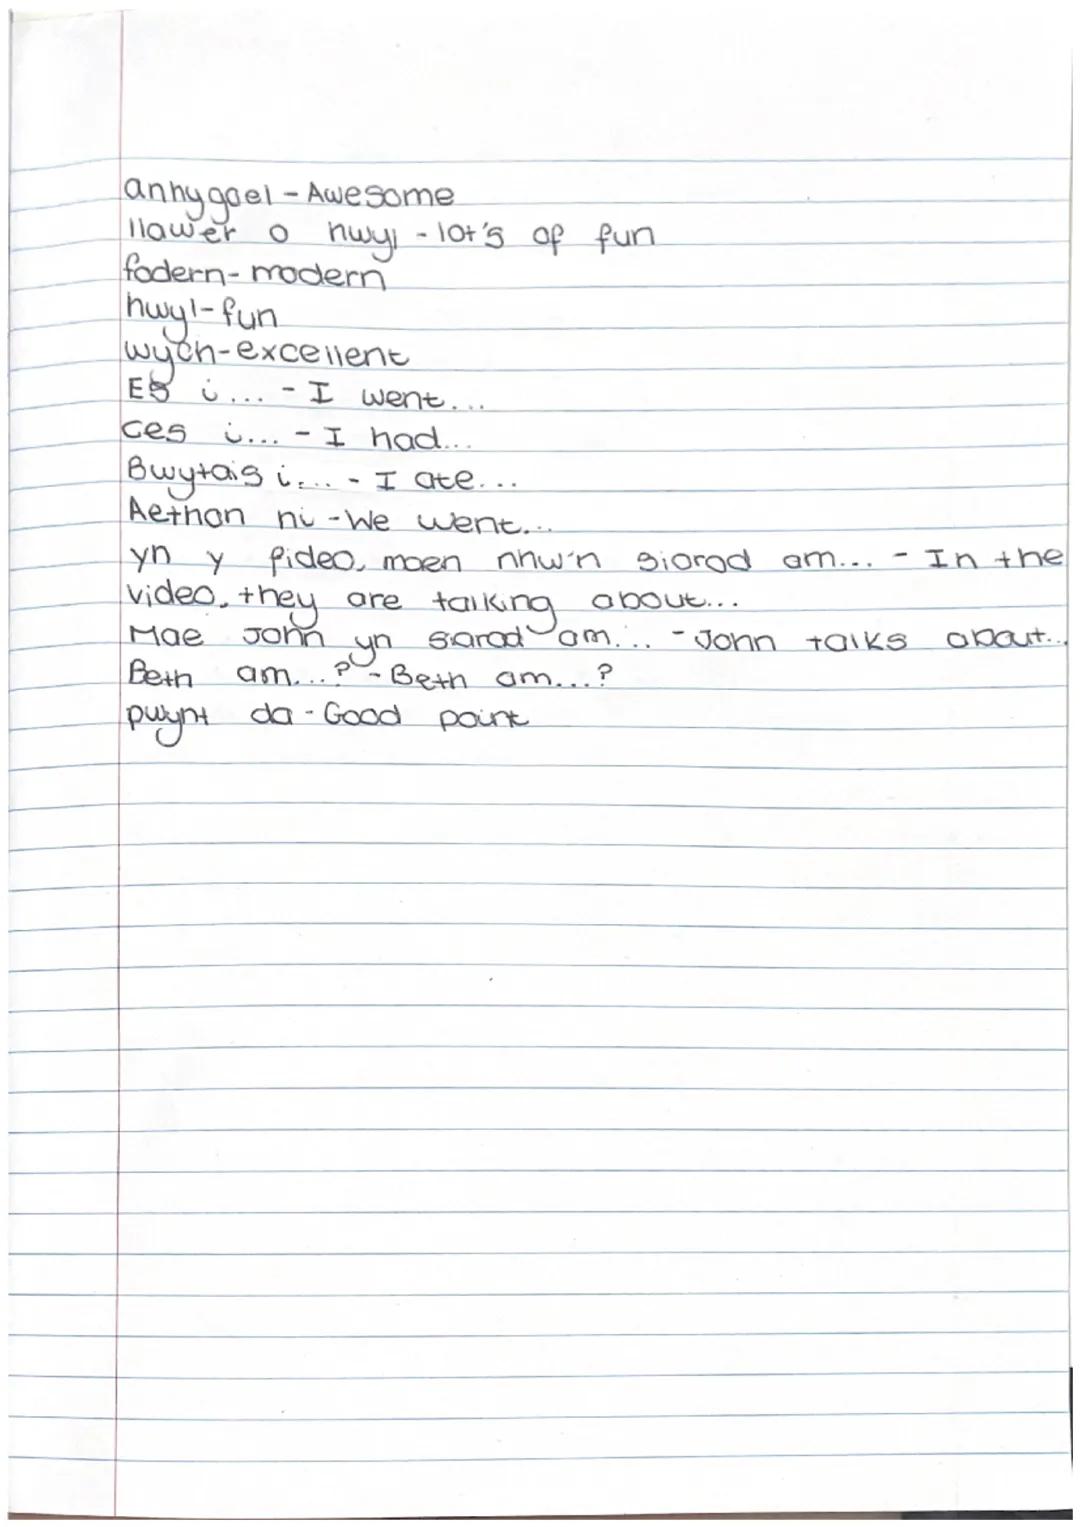 anhygoel - Awesome
llawer o hwyl - lot's of fun
fodern - modern
hwyl - fun
wych - excellent
Es i... - I went...
ces i... - I had...
Bwytais i... - I ate...
Aethon ni - We went...
yn y fideo, maen nhw'n siarad am... - In the
video, they are talking about...
Mae John yn siarad am... - John talks about...
Beth am...? - Beth am...?
pwynt da - Good point